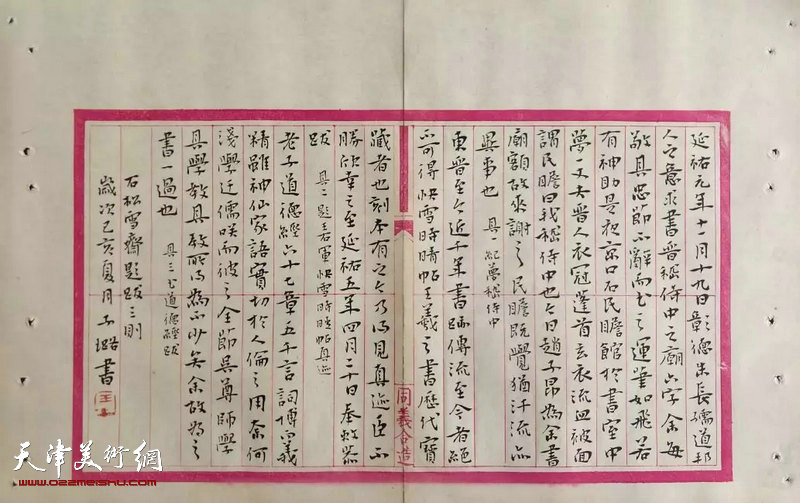 延祐元年十二月十九日彰德朱長孺道邦
人之意求書晉嵇侍中之廟六字余每
敬其忠節不辭而書之運筆如飛若
有神助是夜京口石民瞻館於書室中
夢一丈夫晉人衣冠蓬首玄衣流血被面
謂民瞻曰我嵇侍中也今日趙子昂為余書
廟額故來謝之民瞻既覺猶汗流亦
異事也 其一紀夢嵇侍中
東晉至今近千年書跡傳流至今者絕
不可得快雪時晴帖王羲之書歷代寶
藏者也刻本有之今乃得見真迹臣不
勝欣幸之至延祐五年四月二十日奉敕恭
跋 其二題右軍快雪時晴帖真迹
老子道德經六十七章五千言詞博義
精雖神仙家語實切於人倫之用奈何
淺學迂儒咲而彼之全節吳尊師學
其學教其教所得為不少矣余故為之
書一過也 其三書道德經跋
右松雪齋題跋三則
歲次己亥夏月子璐書
同義合造
天津美術網
www.022meishu.com